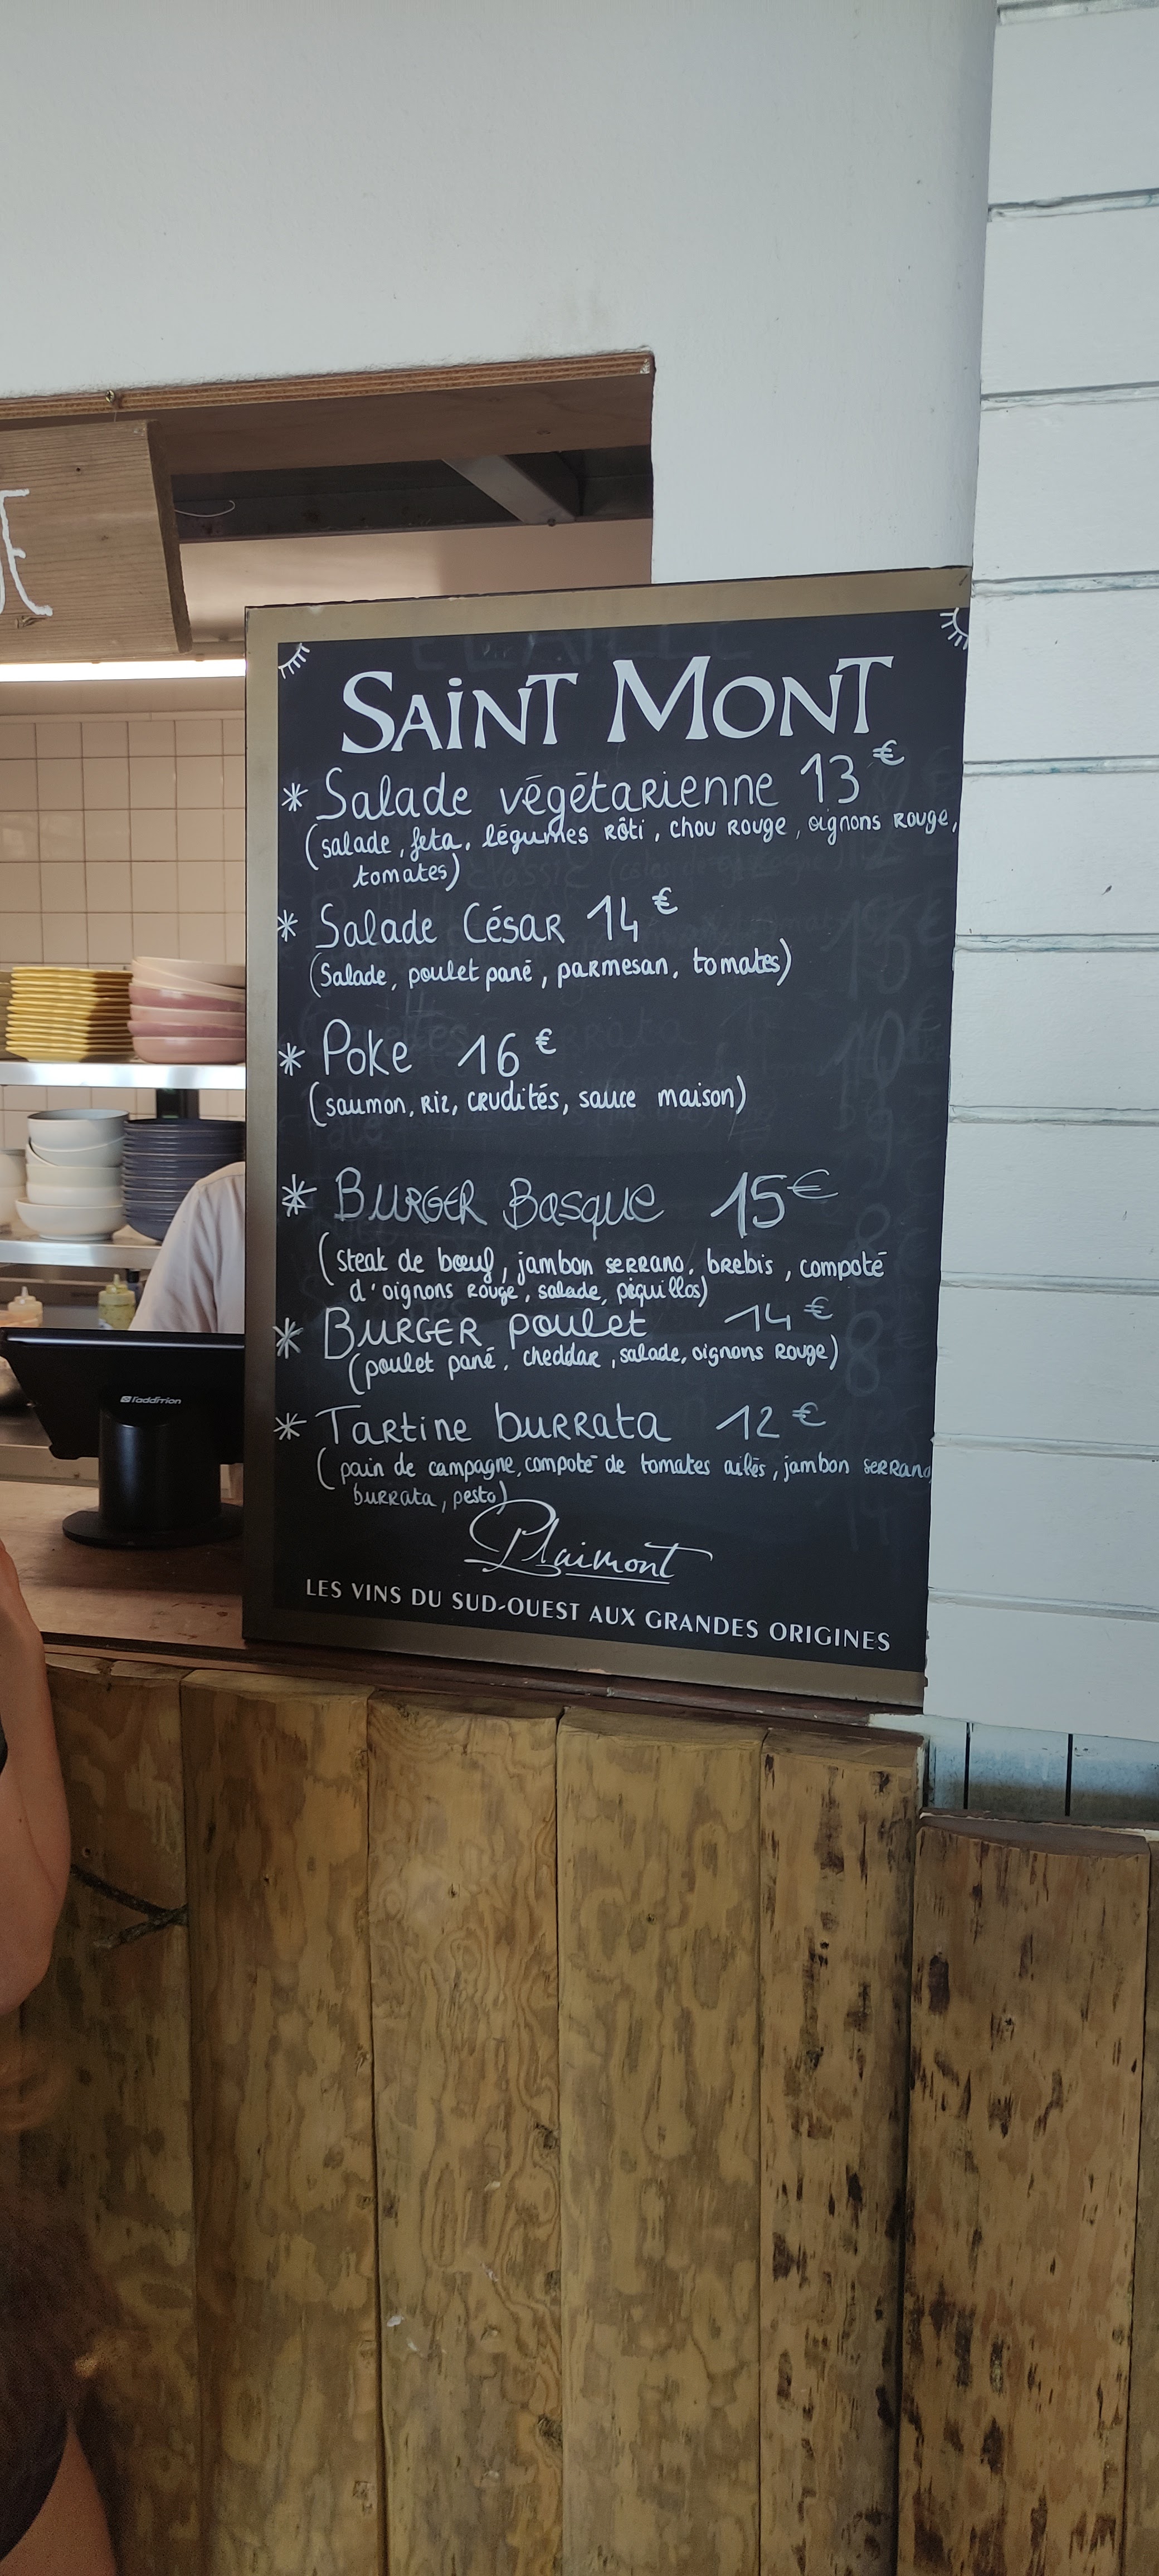 SAINT MONT
* Salade végétarienne 13€
(salade, feta, légumes rôti, chou rouge, oignons rouge,
tomates)
* Salade César 14€
(Salade, poulet pané, parmesan, tomates)
* Poke 16€
(saumon, riz, crudités, sauce maison)
* BURGER Basque 15€
(steak de bœuf, jambon serrano, brebis, compoté
d'oignons rouge, salade, piquillos)
* BURGER poulet 14€
(poulet pané, cheddar, salade, oignons rouge)
* Tartine burrata 12€
(pain de campagne, compoté de tomates ailés, jambon serrano
burrata, pesto)
Plaimont
LES VINS DU SUD-OUEST AUX GRANDES ORIGINES
l'addition